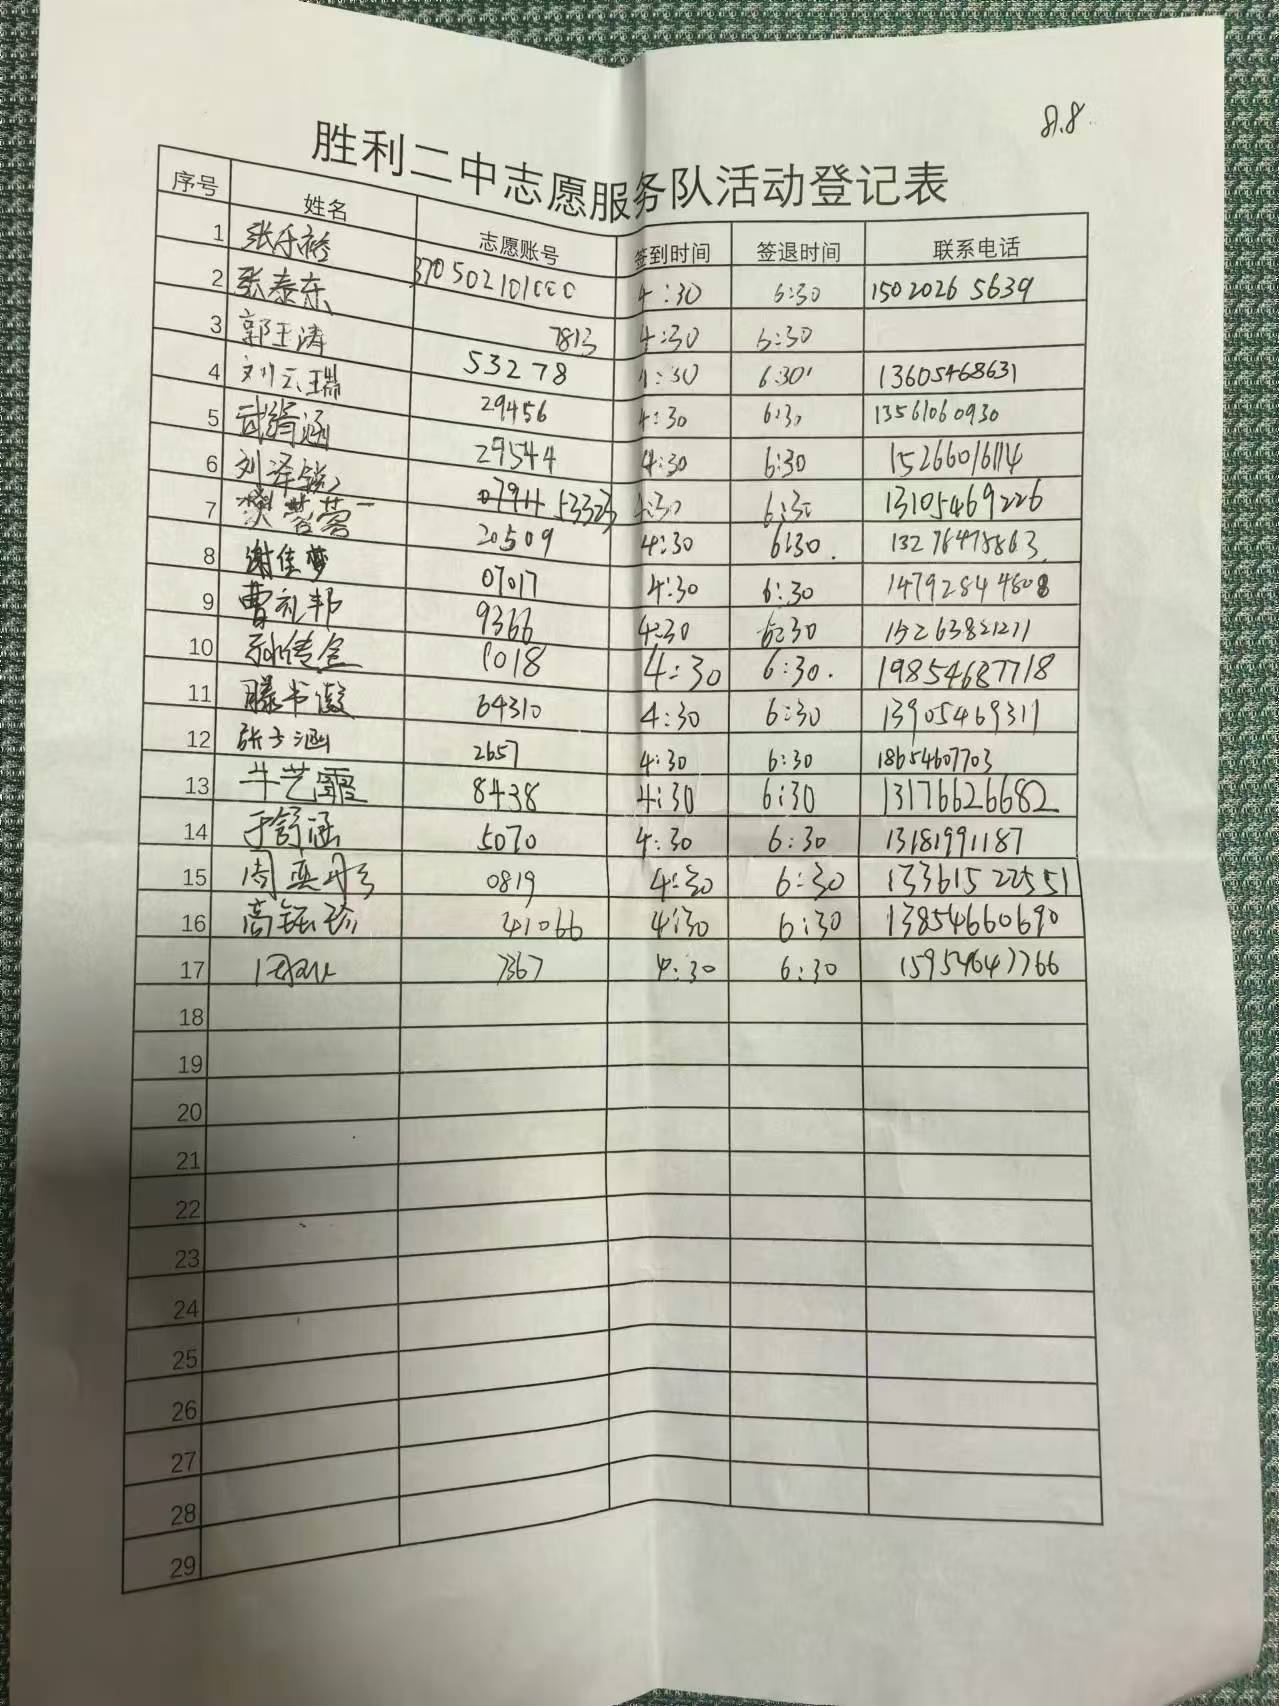 8.8
胜利二中志愿服务队活动登记表
序号 姓名 志愿账号 签到时间 签退时间 联系电话
1 张乐 370502101 4:30 6:30 15020265639
2 张泰东 7813 4:30 6:30
3 郭玉涛 53278 4:30 6:30 13605468631
4 刘云瑞 29456 4:30 6:30 13561060930
5 武绮涵 29544 4:30 6:30 15266016114
6 刘泽锐 53323 4:30 6:30 13105469226
7 樊蓉蓉 20509 4:30 6:30 13276478863
8 谢佳梦 07017 4:30 6:30 14792844808
9 曹礼邦 9366 4:30 6:30 15263821211
10 孙传金 1018 4:30 6:30 19854687718
11 滕书 64310 4:30 6:30 13905469311
12 张子涵 2657 4:30 6:30 18654607703
13 牛艺霏 8438 4:30 6:30 13176626682
14 于舒涵 5070 4:30 6:30 13181991187
15 周奕彤 0819 4:30 6:30 13361522551
16 高钰珍 41066 4:30 6:30 13854660690
17 7367 4:30 6:30 15954647766
18
19
20
21
22
23
24
25
26
27
28
29